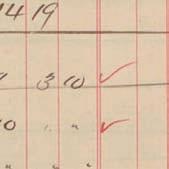 14 19
3 10 ✓
0 " " ✓
" "